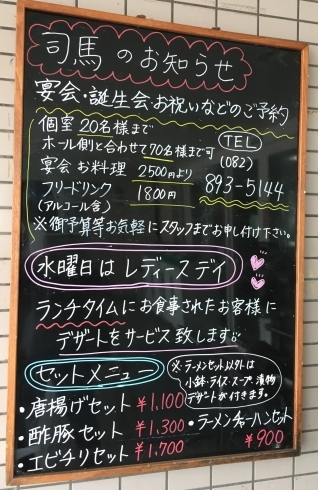 司馬のお知らせ
宴会・誕生会・お祝いなどのご予約
個室 20名様まで
ホール側と合わせて70名様まで可
宴会 お料理 2500円より
フリードリンク 1800円
(アルコール含)
TEL
(082)
893-5144
※御予算等お気軽にスタッフまでお申し付け下さい。
水曜日は レディースデイ
ランチタイムにお食事されたお客様に
デザートをサービス致します
セットメニュー
※ラーメンセット以外は
小鉢・ライス・スープ・漬物
デザートが付きます。
・唐揚げセット ¥1,100
・酢豚セット ¥1,300
・エビチリセット ¥1,700
・ラーメンチャーハンセット
¥900